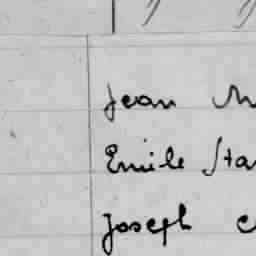 Jean
Emile Sta
Joseph